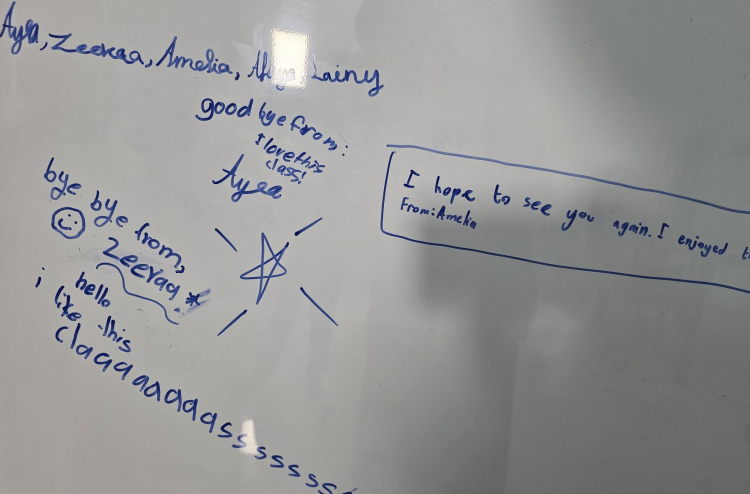 Ayea, Zeeraa, Amelia, Lainy
good bye from:
I love this
class!
Ayea
bye bye from,
Zeeraa
hello
i like this
claaaaaaaasssssss
I hope to see you again. I enjoyed
From: Amelia